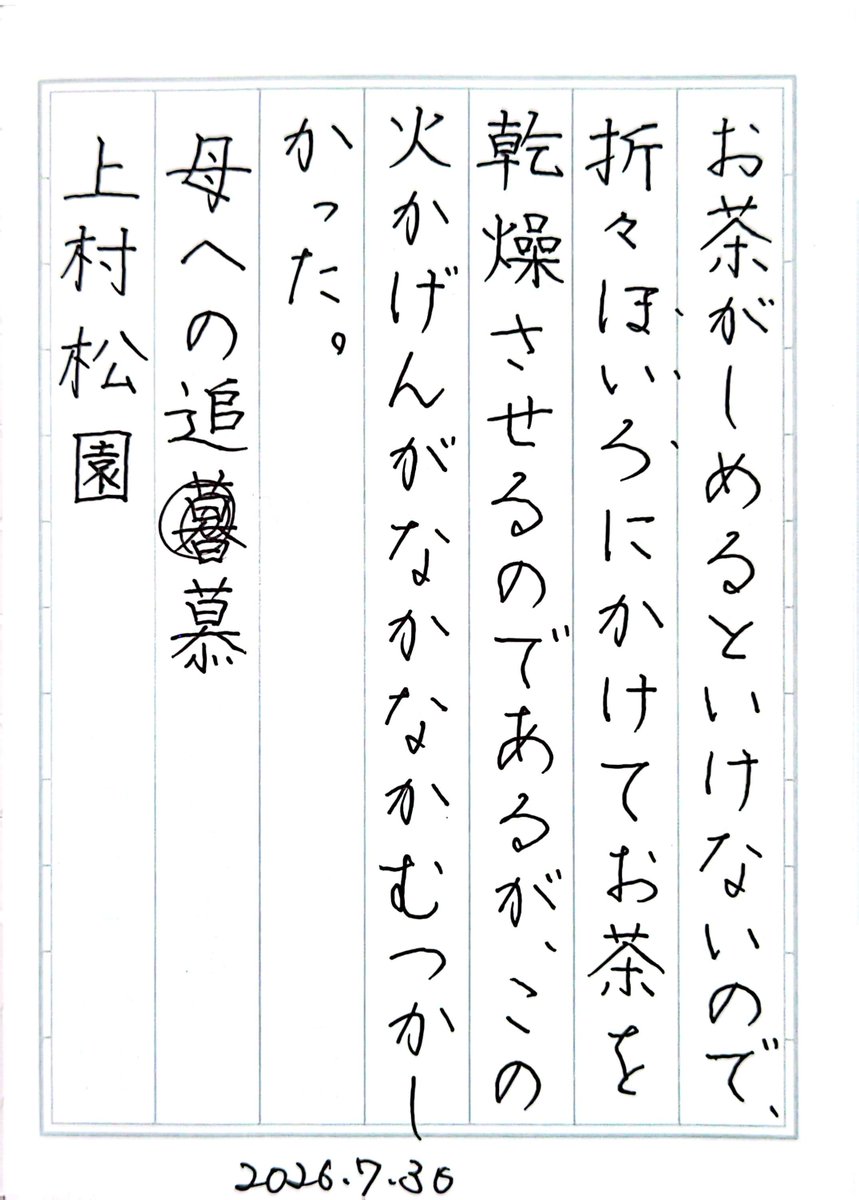 お茶がしめるといけないので、
折々ほいろにかけてお茶を
乾燥させるのであるが、この
火かげんがなかなかむつかし
かった。
母への追慕
上村松園
2026.7.30